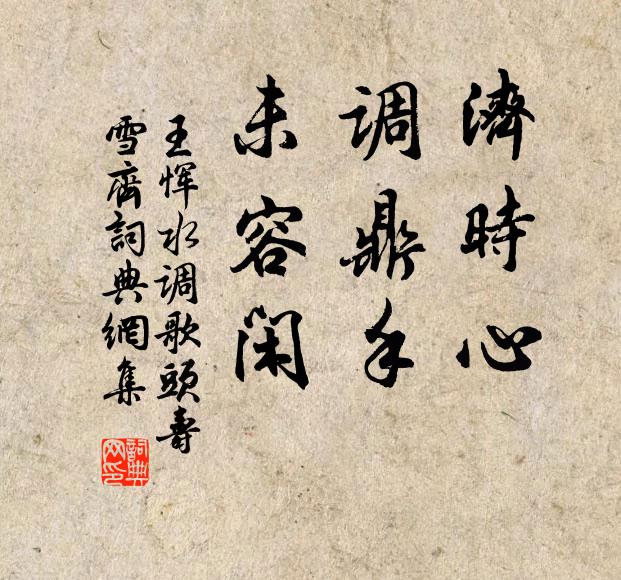 濟時心
调鼎手
未容闲
王恽水调歌頭壽
雪齊詞典網集
詞典网印